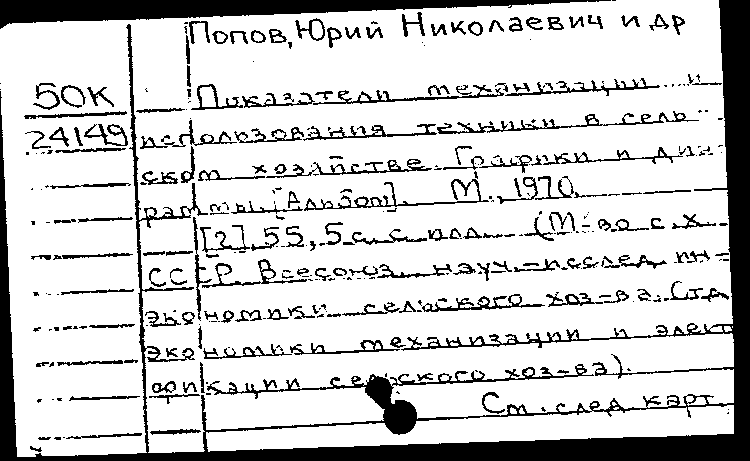 Попов, Юрий Николаевич и др
50К
Показатели механизации и
24149
использования техники в сель
ском хозяйстве. Графики и диаг
раммы. [Альбом]. М., 1970.
[2], 55, 5 с. с илл. (М-во с.х.
СССР. Всесоюз. науч.-исслед. ин-
экономики сельского хоз-ва. Отд.
экономики механизации и элект
фикации сельского хоз-ва).
См. след. карт.